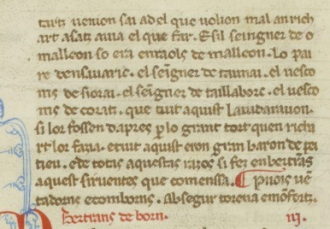 tartz venion sai ad el que volion mal an rich
art asatz auia el que far. E si·l seingner de o
malleon so era enraols de malleon. Lo pai
re densauaric. el seigner de taunai. el uesco
ms de siorai. el seigner de taillaborc. el uesco
ms de coratz. que tuit aquist laudauanon.
si lor fossen dapres p lo grant tort quen richi
rt lor faria. e tuit aquist eron gran baron de pei
tieu. e de totas aquestas razos si fez en bertrās
aquest siruentes que comensa. Puois ue
tadorns e comborns. ab segur torena e monfort.
Bertrans de born. III.